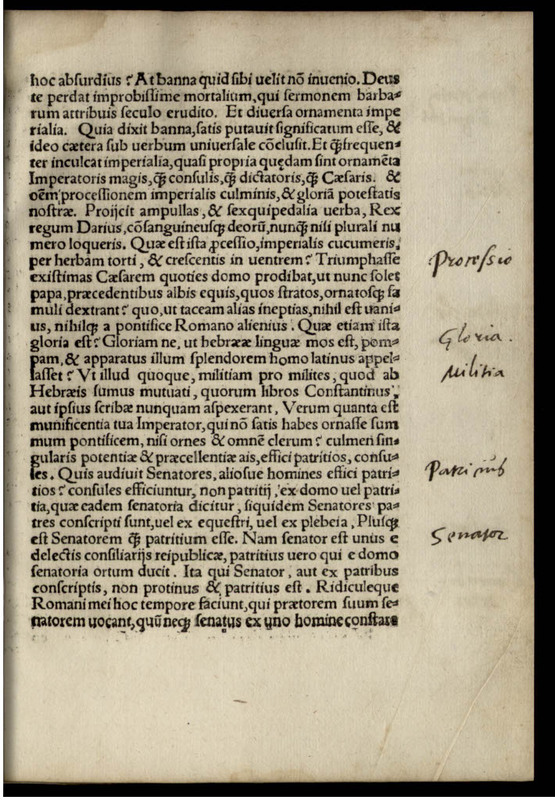 hoc absurdius? At banna quid sibi uelit nõ inuenio. Deus
te perdat improbissime mortalium, qui sermonem barba-
rum attribuis seculo erudito. Et diuersa ornamenta impe
rialia. Quia dixit banna, satis putauit significatum esse, &
ideo cætera sub uerbum uniuersale cõclusit. Et q̃ frequen-
ter inculcat imperialia, quasi propria quędam sint ornamẽta
Imperatoris magis, q̃ consulis, q̃ dictatoris, q̃ Cæsaris. &
oẽm processionem imperialis culminis, & gloriã potestatis
nostræ. Proijcit ampullas, & sexquipedalia uerba, Rex
regum Darius, cõsanguineusq; deorũ, nunq̃ nisi plurali nu
mero loqueris. Quæ est ista ꝓcessio, imperialis cucumeris,
per herbam torti, & crescentis in uentrem? Triumphasse
existimas Cæsarem quoties domo prodibat, ut nunc solet
papa, præcedentibus albis equis, quos stratos, ornatosq; fa
muli dextrant? quo, ut taceam alias ineptias, nihil est uani-
us, nihilq; a pontifice Romano alienius. Quæ etiam ista
gloria est? Gloriam ne, ut hebrææ linguæ mos est, pom-
pam, & apparatus illum splendorem homo latinus appel-
lasset? Vt illud quoque, militiam pro milites, quod ab
Hebræis sumus mutuati, quorum libros Constantinus,
aut ipsius scribæ nunquam aspexerant, Verum quanta est
munificentia tua Imperator, qui nõ satis habes ornasse sum
mum pontificem, nisi ornes & omnẽ clerum? culmen sin-
gularis potentiæ & præcellentiæ ais, effici patritios, consu-
les. Quis audiuit Senatores, aliosue homines effici patri-
tios? consules efficiuntur, non patritij, ex domo uel patri-
tia, quæ eadem senatoria dicitur, siquidem Senatores pa-
tres conscripti sunt, uel ex equestri, uel ex plebeia, Plusq;
est Senatorem q̃ patritium esse. Nam senator est unus e
delectis consiliarijs reipublicæ, patritius uero qui e domo
senatoria ortum ducit. Ita qui Senator, aut ex patribus
conscriptis, non protinus & patritius est. Ridiculeque
Romani mei hoc tempore faciunt, qui prætorem suum se-
natorem uocant, quũ neq; senatus ex uno homine constare
Processio
Gloria.
Militia
Patritius
Senator